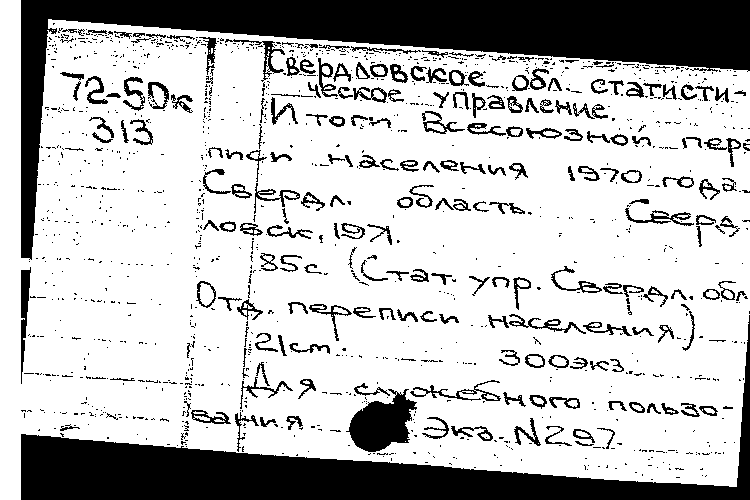 72-5Dк
313
Свердловское обл. статисти-
ческое управление.
Итоги Всесоюзной пере
писи населения 1970 года.
Свердл. область. Сверд-
ловск, 1971.
85с. (Стат. упр. Свердл. обл
Отд. переписи населения).
21см. 300экз.
Для служебного пользо-
вания Экз. N297.